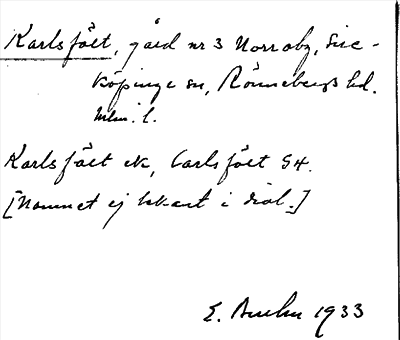 Karlsfält, gård nr 3 Norraby, Sire-
köpinge sn, Rönnebergs hd.
Mlm. l.
Karlsfält ek, Carlsfält GH.
[Namnet ej bekant i dial.]
E. 1933